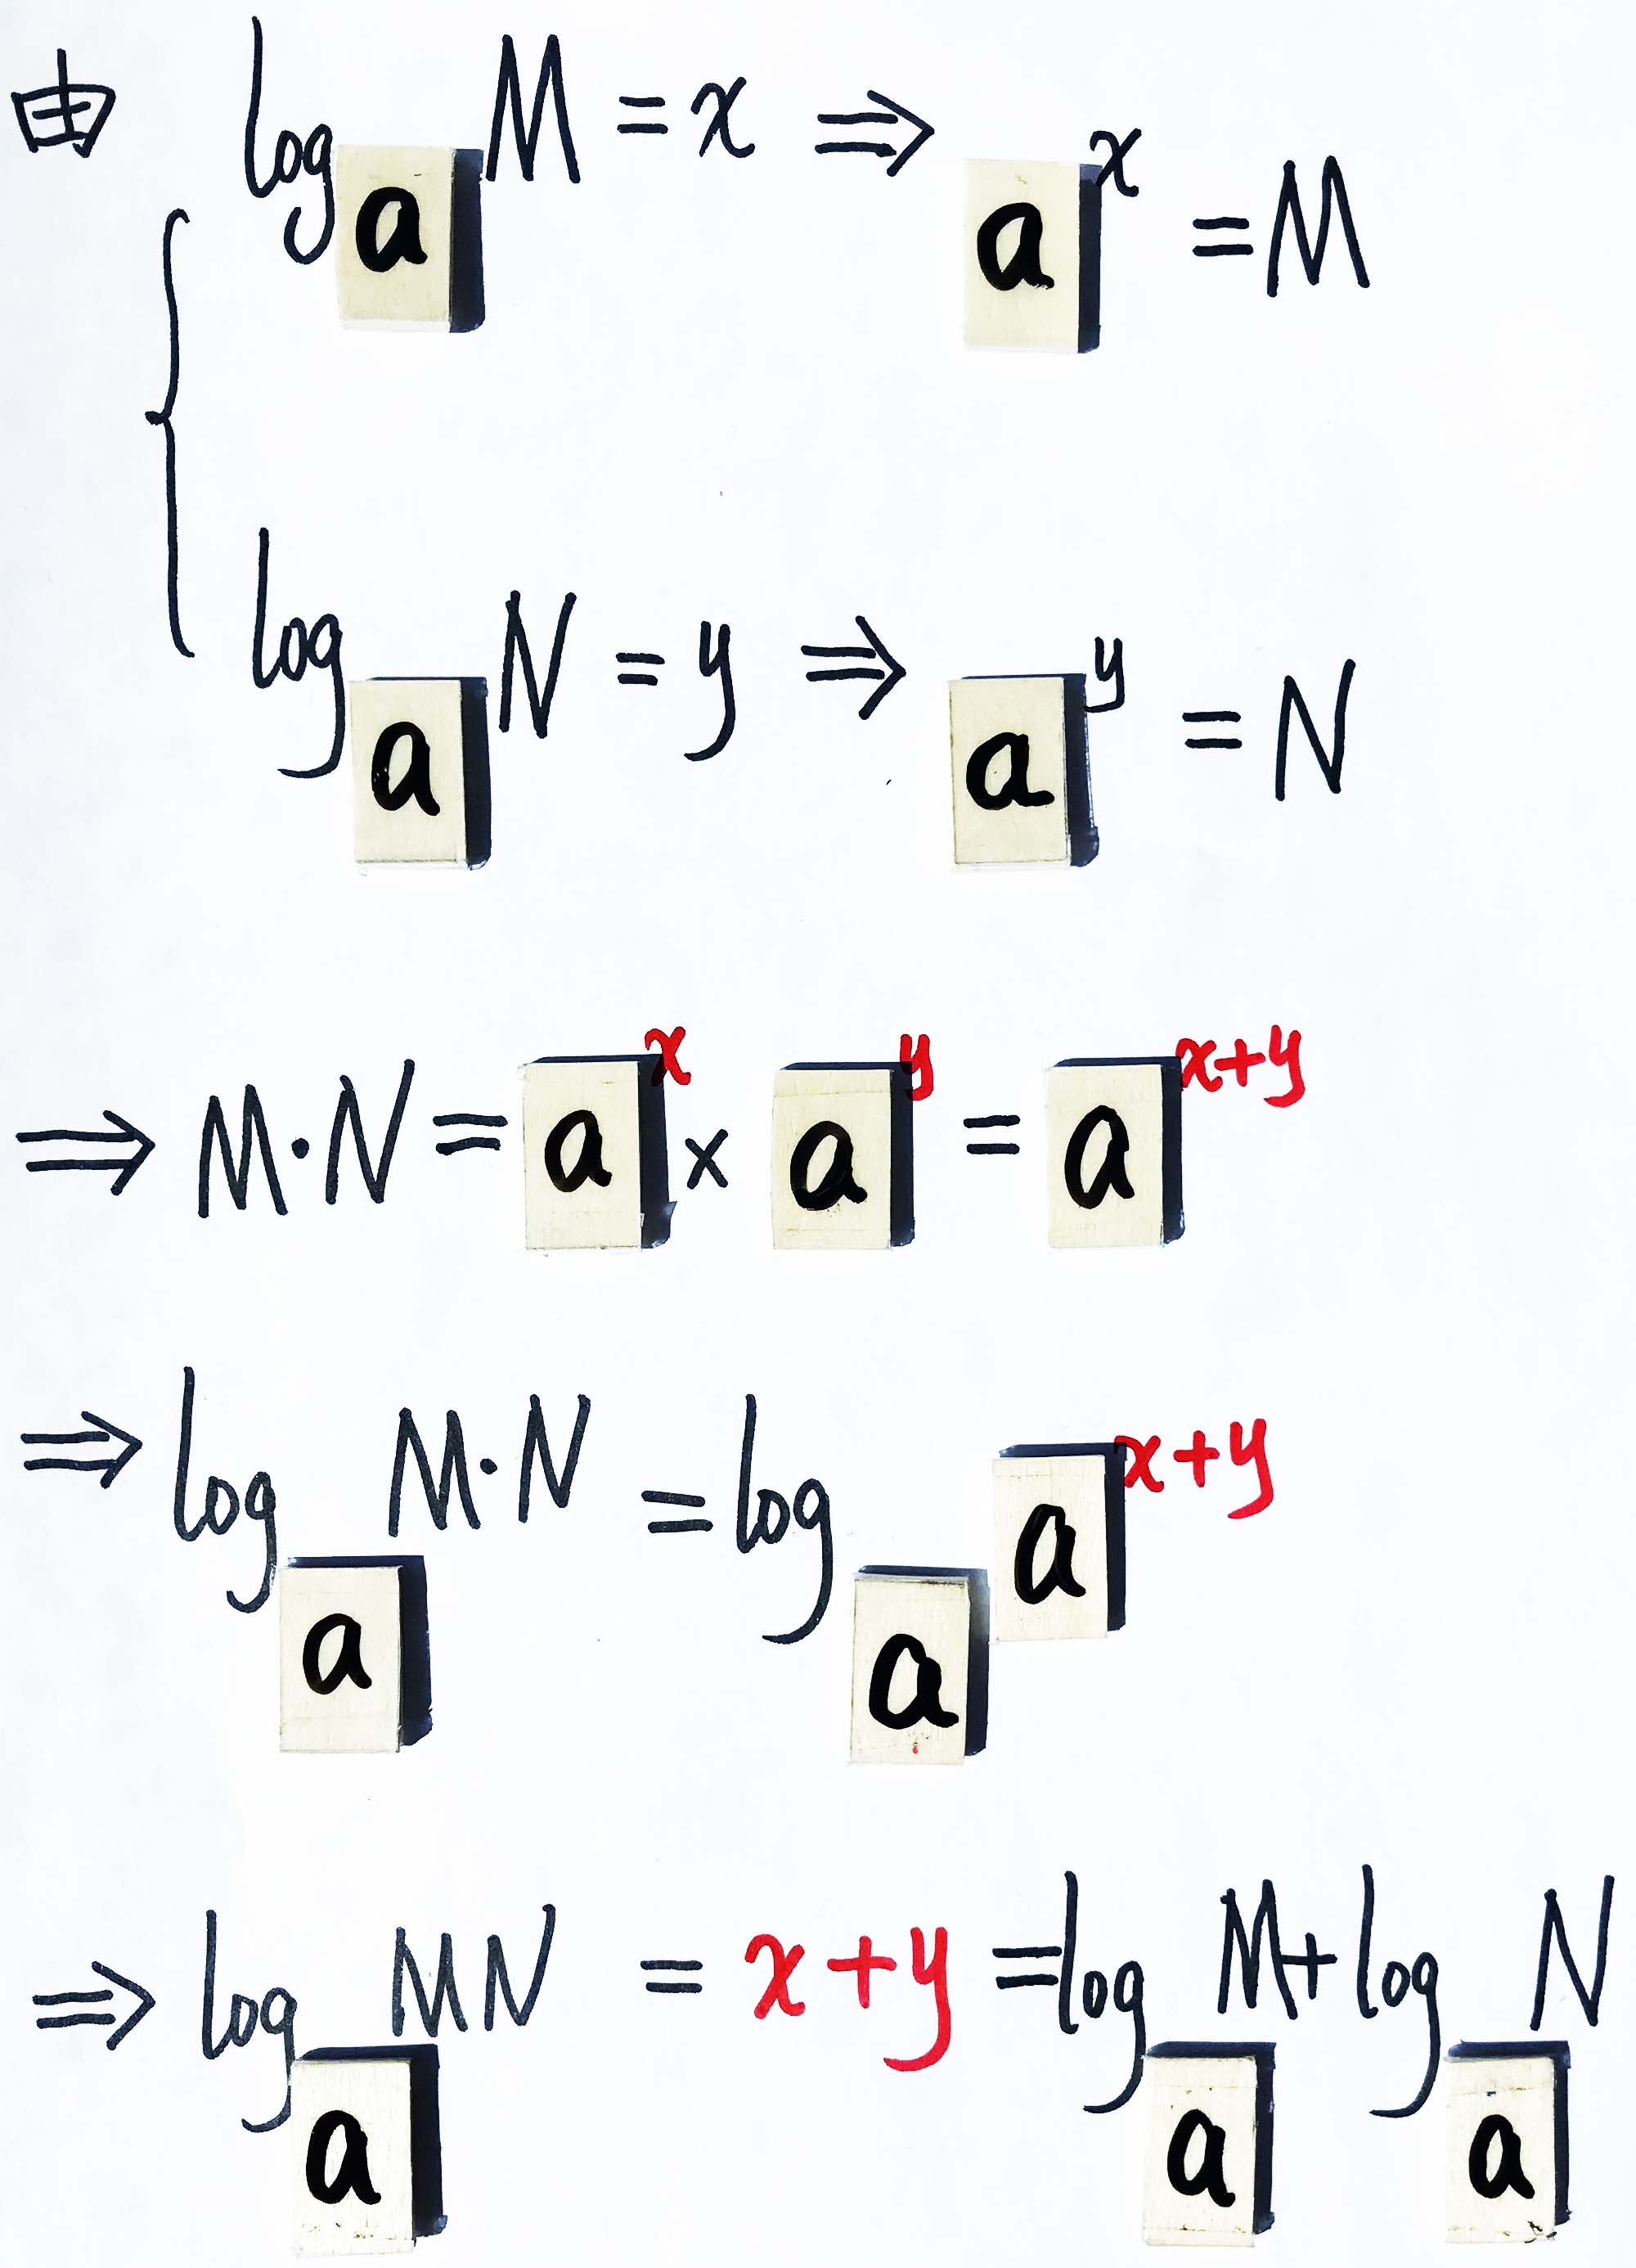 由 logₐ M = x ⇒ aˣ = M
logₐ N = y ⇒ aʸ = N
⇒ M·N = aˣ × aʸ = aˣ⁺ʸ
⇒ logₐ M·N = logₐ aˣ⁺ʸ
⇒ logₐ MN = x+y = logₐ M + logₐ N